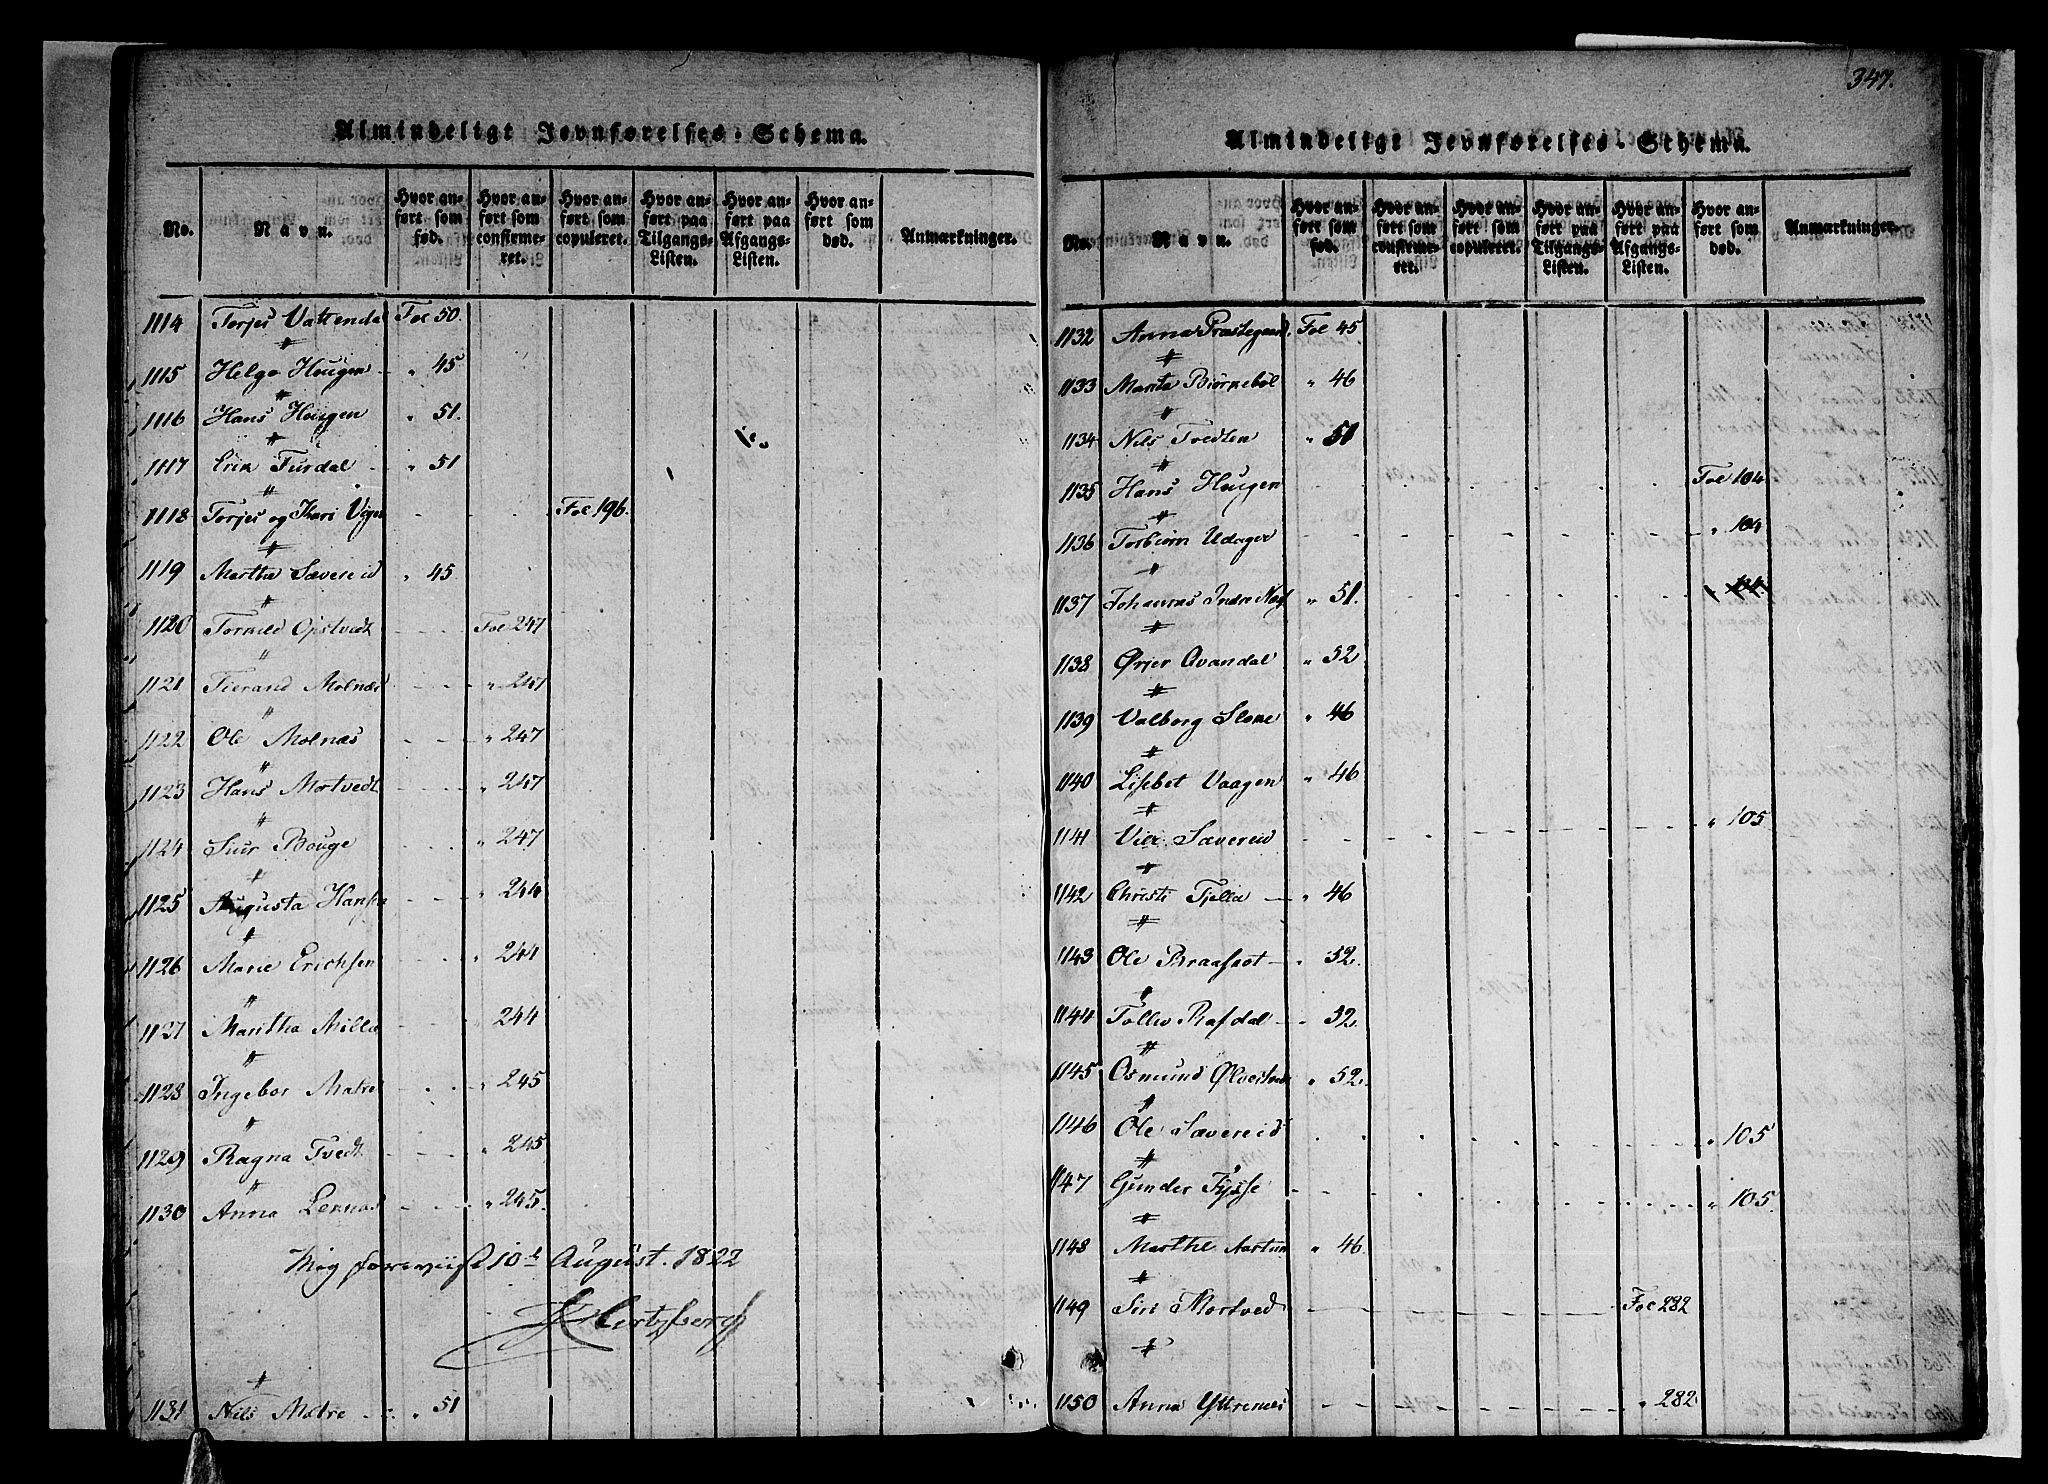 Almindeligt Jevnførelses-Schema.
No. Navn. Hvor anført som fød. Hvor anført som confirmeret. Hvor anført som copuleret. Hvor anført paa Tilgangs-Listen. Hvor anført paa Afgangs-Listen. Hvor anført som død. Anmærkninger.
1114 Torjes Vattendal Fol 50.
1115 Helge Hougen " 45
1116 Hans Hougen " 51.
1117 Erik Furdal " 51
1118 Torjes og Kari Fol 196.
1119 Martha Sævereid " 45
1120 Opstvedt Fol 247
1121 Molnæs " 247
1122 Ole Molnæs " 247
1123 Hans Mortvedt " 247
1124 Siur Bouge " 247
1125 Augusta Hansen " 244
1126 Marie Erichsen " 244
1127 Maritha 244
1128 Ingebor Matre " 245
1129 Ragna Tvedt " 245
1130 Anna Lernæs " 245.
Mig foreviist 10d August. 1822
Hertzberg
1131 Nils Matre " 51
347.
Almindeligt Jevnførelses-Schema.
No. Navn. Hvor anført som fød. Hvor anført som confirmeret. Hvor anført som copuleret. Hvor anført paa Tilgangs-Listen. Hvor anført paa Afgangs-Listen. Hvor anført som død. Anmærkninger.
1132 Anna Præstegaard Fol 45
1133 Marita Biørnebøl " 46
1134 Nils Tvedten " 51
1135 Hans Hougen Fol 104
1136 Torbiørn Udager " 104
1137 Johannes Indre Næs " 51.
1138 Ørjer Qvandal " 52
1139 Valborg " 46
1140 Lisbet Vaagen " 46
1141 Sævereid " 105
1142 Christi Fjellie " 46
1143 Ole " 52.
1144 Tollev Rafdal " 52.
1145 Osmund Ølvestved " 52.
1146 Ole Sævereid " 105
1147 Gunder Tysse " 105.
1148 Marthe Aartun " 46.
1149 Siri Mortved Fol 282
1150 Anna Yttrenæs " 282